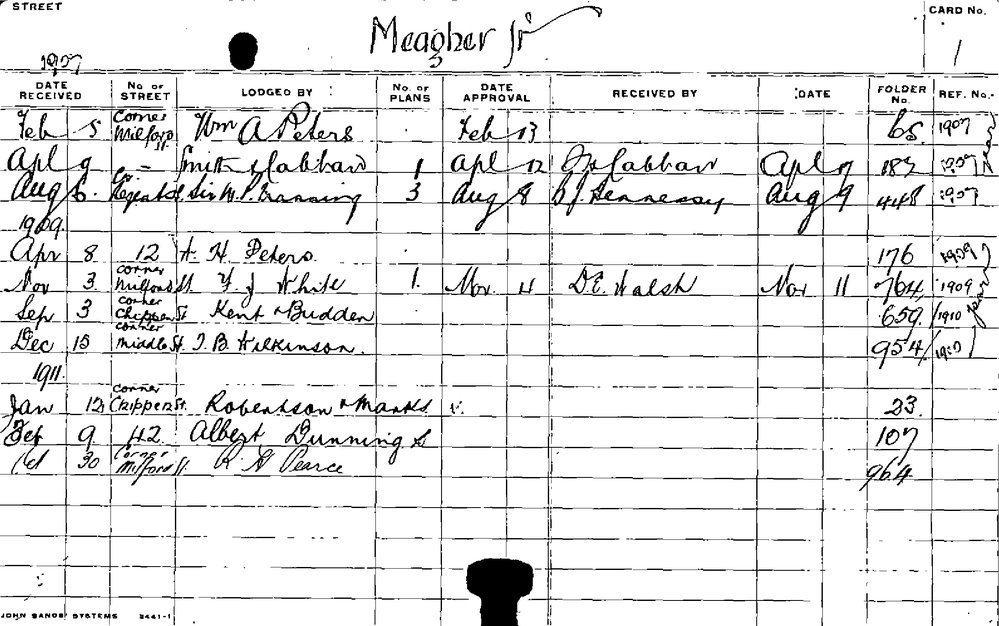 STREET
CARD No.
Meagher St
1
1907
DATE RECEIVED No. OF STREET LODGED BY No. OF PLANS DATE APPROVAL RECEIVED BY DATE FOLDER No. REF. No.
Feb 5 Corner Milford St Wm A Peters Feb 13 65 1907
Apl 9 Smith & 1 Apl 12 Apl 187 1907
Aug 6 cr. Regent St Sir W. P. Manning 3 Aug 8 J. Hennessy Aug 9 448 1907
1909
Apr 8 12 H. H. Peters 176 1909
Nov 3 corner Milford St J White 1 Nov 4 D E Walsh Nov 11 764 1909
Sep 3 corner Chippen St Kent & Budden 659 1910
Dec 15 corner Middle St J. B. Wilkinson 954 1910
year
1911
Jan 12 corner Chippen St. Robertson & Marks 23
Feb 9 42 Albert Dunning 107
Oct 30 Corner Milford St. R G Pearce 964
JOHN SANDS SYSTEMS 2441-1